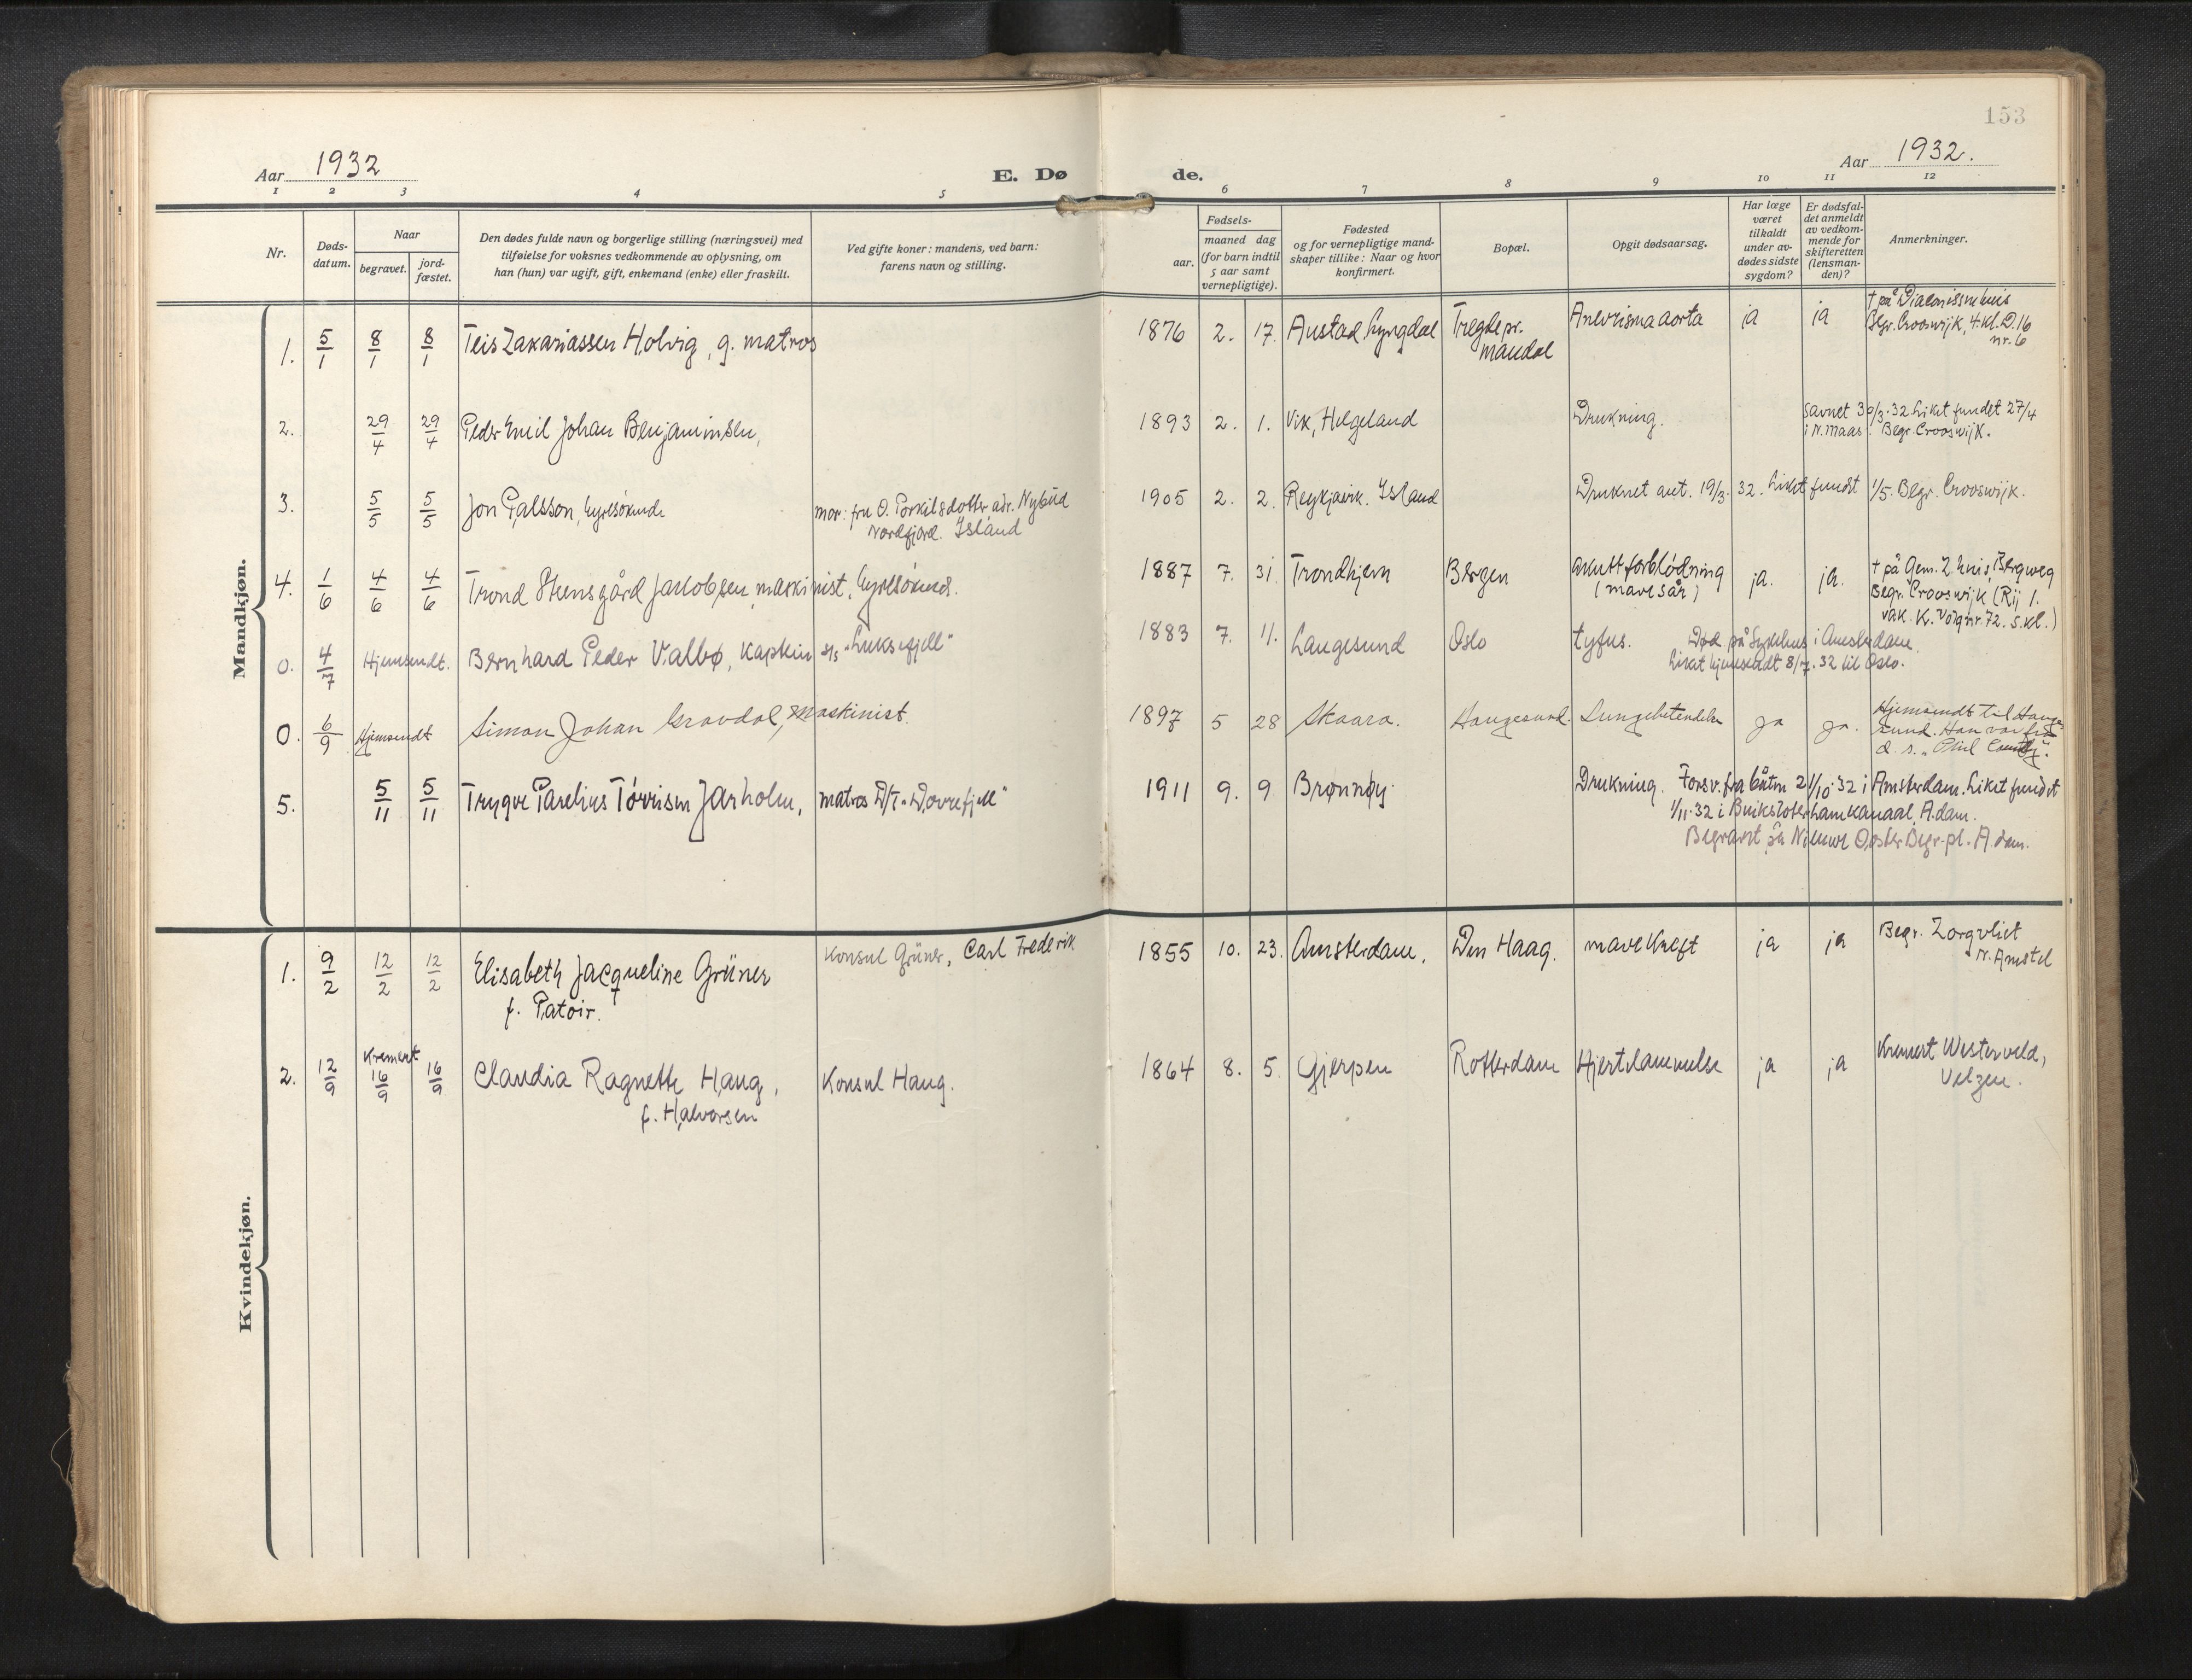 153
Aar 1932
E. Dø de.
Aar 1932.
1 2 3 4 5 6 7 8 9 10 11 12
Nr.
Døds-
datum.
Naar
begravet.
jord-
fæstet.
Den dødes fulde navn og borgerlige stilling (næringsvei) med
tilføielse for voksnes vedkommende av oplysning, om
han (hun) var ugift, gift, enkemand (enke) eller fraskilt.
Ved gifte koner: mandens, ved barn:
farens navn og stilling.
Fødsels-
aar.
maaned dag
(for barn indtil
5 aar samt
vernepligtige).
Fødested
og for vernepligtige mand-
skaper tillike: Naar og hvor
konfirmert.
Bopæl.
Opgit dødsaarsag.
Har læge
været
tilkaldt
under av-
dødes sidste
sygdom?
Er dødsfal-
det anmeldt
av vedkom-
mende for
skifteretten
(lensman-
den)?
Anmerkninger.
Mandkjøn.
1. 5/1 8/1 8/1 Teis Zakariassen Holvig, g. matros 1876 2. 17. Austad Lyngdal Tregde pr. Anevrisma aorta ja ja † på Diakonissehuis
Mandal Begr. Crooswijk, 4. kl. D. 16
nr. 6
2. 29/4 29/4 Peder Emil Johan Benjaminsen, 1893 2. 1. Vik, Helgeland Drukning. savnet 30/3.32 Liket fundet 27/4
i N. Maas. Begr. Crooswijk.
3. 5/5 5/5 Jon Palsson, hyresøkende mor: fru O. Porkilsdotter adr. Nybud 1905 2. 2. Reykjavik. Island Druknet ant. 19/3. 32. Liket fundet 1/5. Begr. Crooswijk.
Nordfjord. Island
4. 1/6 4/6 4/6 Trond Stensgård Jakobsen, maskinist, hyresøkend. 1887 7. 31 Trondhjem Bergen akutt forblødning ja. ja. † på Gem. Z. huis, Bergweg
(mavesår) Begr. Crooswijk (Rij 1.
vak. K. Volgnr. 72. 5. kl.)
0. 4/7 Hjemsendt. Bernhard Peder Valbø, kaptein s/s "Luksefjell" 1883 7. 11. Langesund Oslo tyfus. Død på Sykehus i Amsterdam
Liket hjemsendt 8/7. 32 til Oslo.
0. 6/9 Hjemsendt Simon Johan Gravdal, Maskinist. 1897 5 28 Skaara. Haugesund. Lungebetendelse ja ja. Hjemsendt til Hauge-
sund. Han var fra
d. s.
5. 5/11 5/11 Trygve Parelius Törrisen Jarholm, matros D/T "Dovrefjell" 1911 9. 9 Brønnøy Drukning. Forsv. fra båten 21/10 32 i Amsterdam. Liket fundet
1/11.32 i Buiksloterhamkanaal, A.dam.
Begravet på Nieuwe Ooster Begr. pl. A.dam.
Kvindekjøn.
1. 9/2 12/2 12/2 Elisabeth Jacqueline Grüner Konsul Grüner, Carl Frederik 1855 10. 23. Amsterdam. Den Haag. mavekreft ja ja Begr. Zorgvliet
f. Patoir. N. Amstel
2. 12/9 Kremert 16/9 16/9 Claudia Ragnette Haug, Konsul Haug. 1864 8. 5. Gjerpen Rotterdam Hjertelammelse ja ja Kremert Westerveld,
f. Halvorsen Velzen.